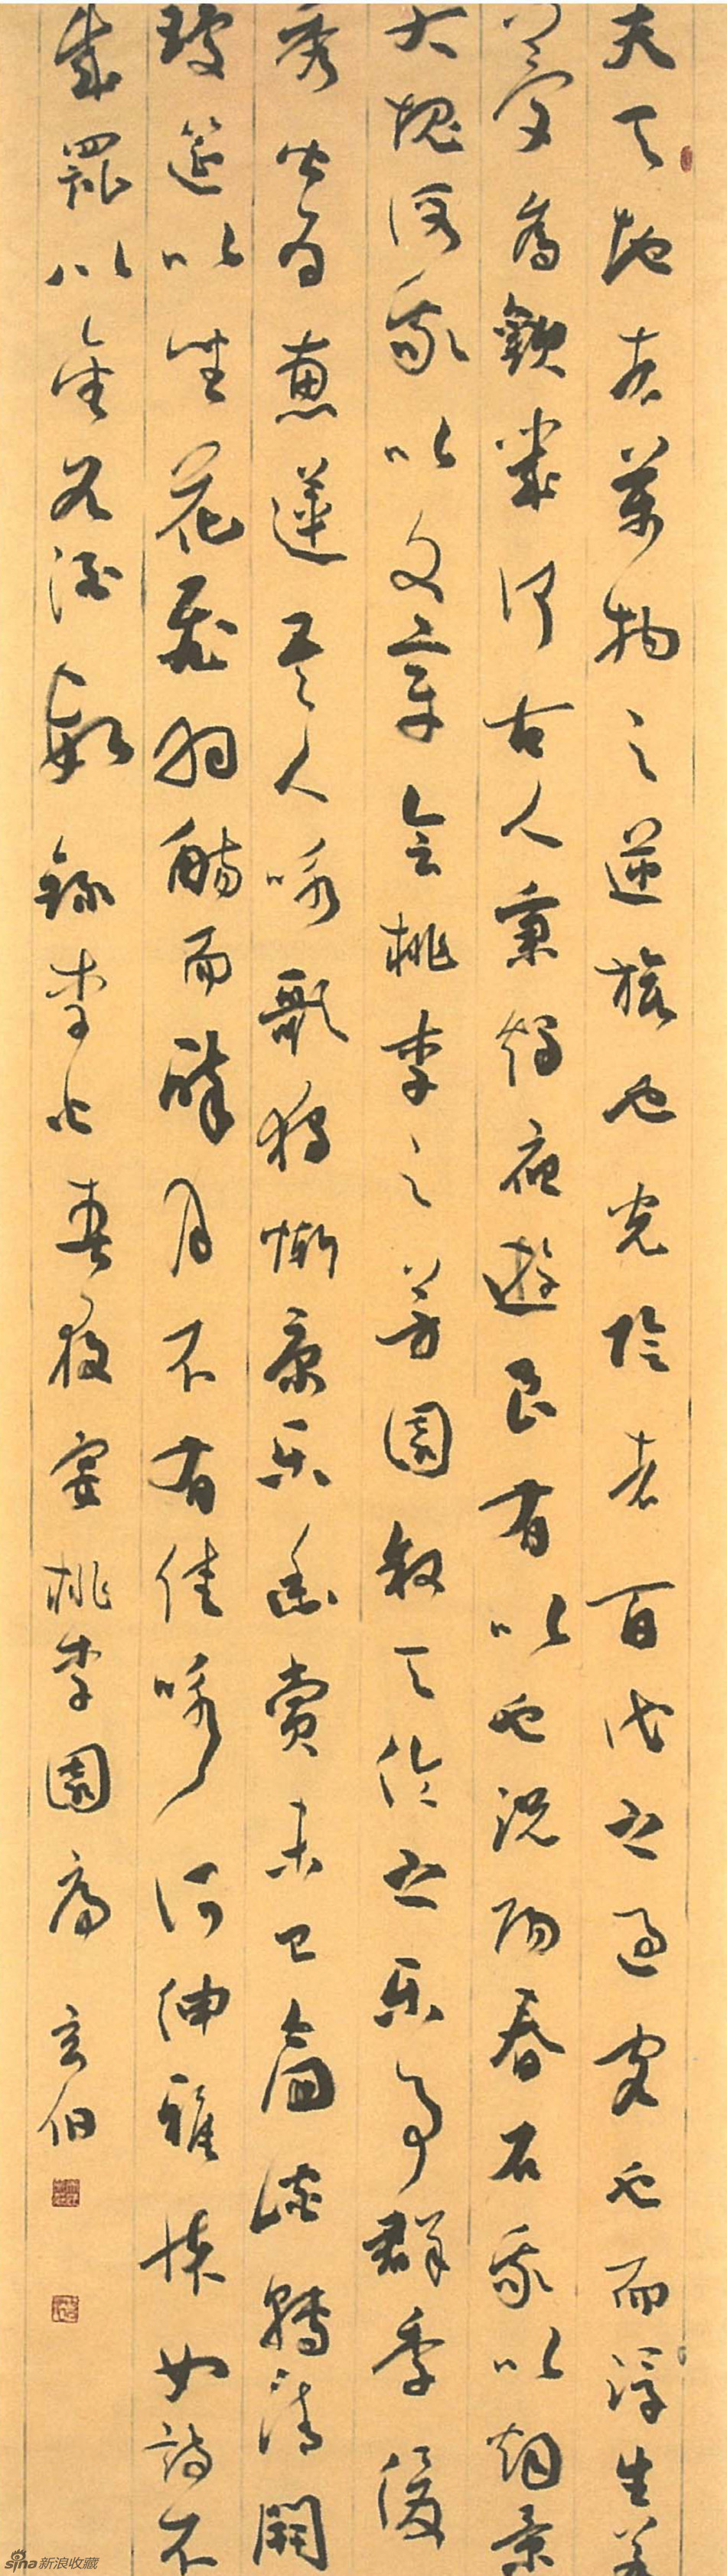 夫天地者萬物之逆旅也光陰者百代之過客也而浮生若
夢為歡幾何古人秉燭夜遊良有以也況陽春召我以烟景
大塊假我以文章會桃李之芳園敘天倫之樂事群季俊
秀皆為惠連吾人詠歌獨慚康樂幽賞未已高談轉清開
瓊筵以坐花飛羽觴而醉月不有佳詠何伸雅懷如詩不
成罰以金谷酒數錄李白春夜宴桃李園序玄伯
sina新浪收藏